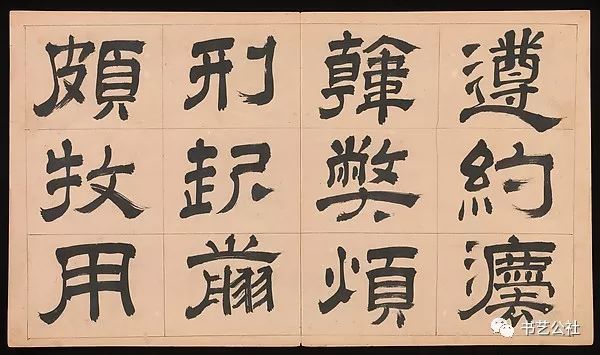 遵約灋
韓弊煩
刑起翦
頗牧用
书艺公社